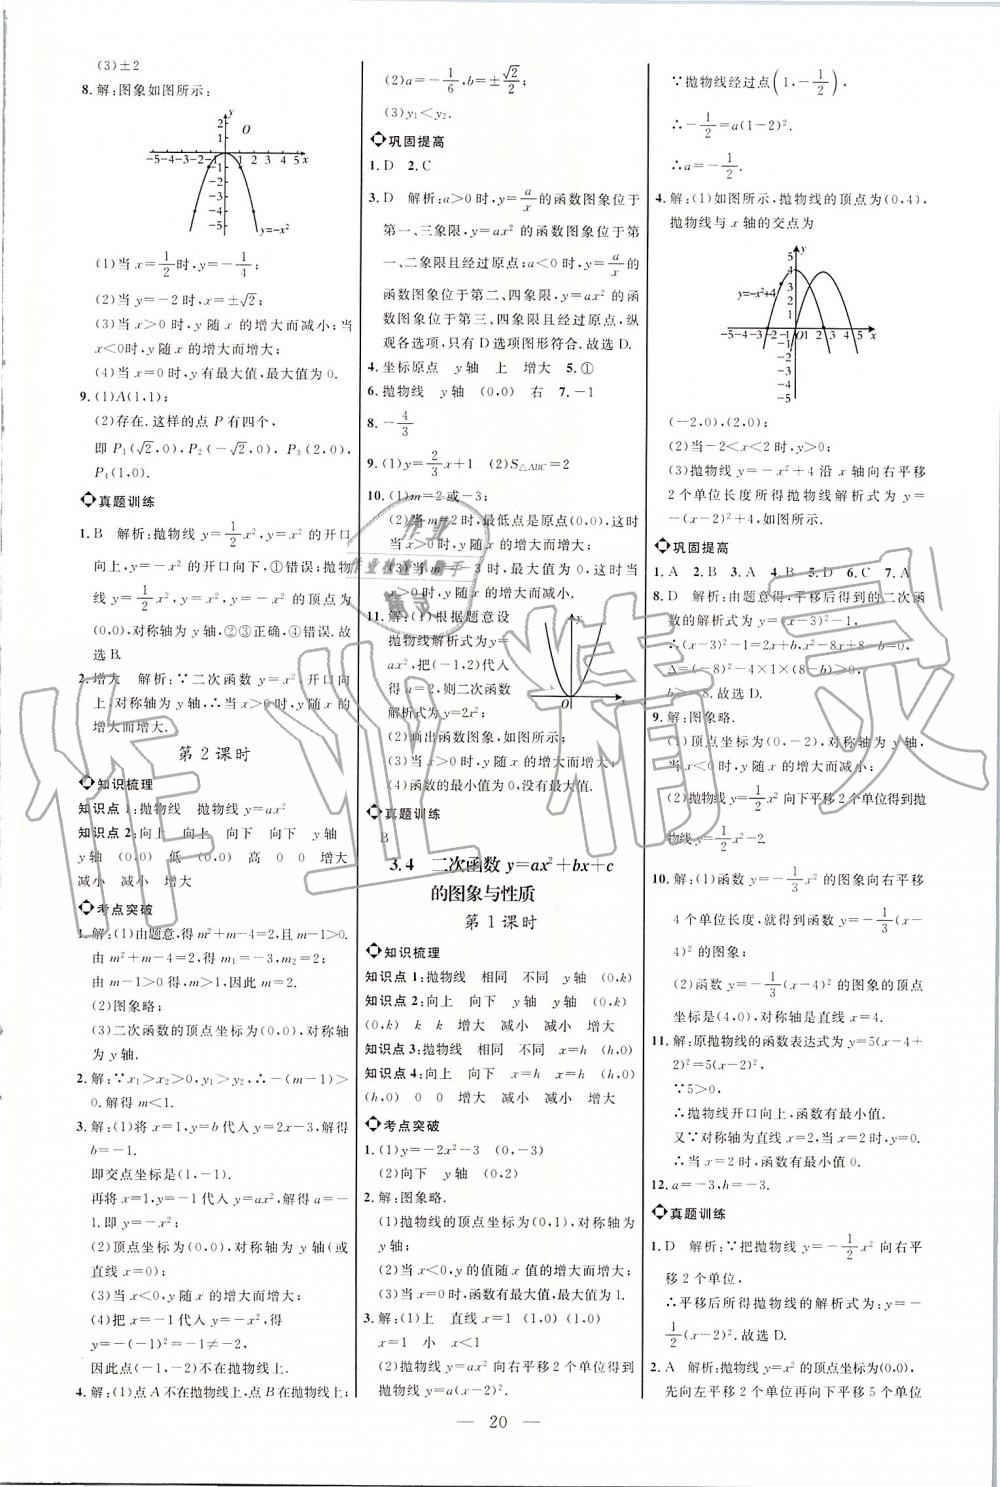 (3)±2
8.解:图象如图所示:
y
2
1
O
-5-4-3-2-1 1 2 3 4 5 x
-1
-2
-3
-4
-5
y=-x²
(1)当 x=1/2时,y=-1/4;
(2)当 y=-2 时,x=±√2;
(3)当 x>0 时,y 随 x 的增大而减小;当
x<0时,y 随 x 的增大而增大;
(4)当 x=0 时,y 有最大值,最大值是0.
9.(1)A(1,1);
(2)存在.这样的点 P 有四个,
即 P₁(√2,0),P₂(-√2,0),P₃(2,0),
P₄(1,0).
真题训练
1.B 解析:抛物线 y=1/2x²,y=x² 的开口
向上,y=-x² 的开口向下,①错误;抛物
线 y=1/2x²,y=x²,y=-x² 的顶点为
(0,0),对称轴为 y 轴,②③正确,④错误.故
选 B.
2.增大 解析:∵二次函数 y=x²,开口向
上,对称轴为 y 轴,∴当 x>0 时,y 随 x 的
增大而增大.
第 2 课时
知识梳理
知识点 1:抛物线 抛物线 y=ax²
知识点 2:向上 向上 向下 向下 y 轴
y 轴 (0,0) 低 (0,0) 高 0 0 增大
减小 减小 增大
考点突破
1.解:(1)由题意,得 m²+m-4=2,且 m-1>0.
由 m²+m-4=2,得 m₁=-3,m₂=2.
由 m-1>0,得 m>1,因此 m=2.
(2)图象略;
(3)二次函数的顶点坐标为(0,0),对称轴
为 y 轴.
2.解:∵x₁>x₂>0,y₁>y₂,∴-(m-1)>
0.解得 m<1.
3.解:(1)将 x=1,y=b 代入 y=2x-3,解得
b=-1.
即交点坐标是(1,-1).
再将 x=1,y=-1 代入 y=ax²,解得 a=-
1.即 y=-x²;
(2)顶点坐标为(0,0),对称轴为 y 轴(或
直线 x=0);
(3)当 x<0 时,y 随 x 值的增大而增大;
(4)把 x=-1 代入 y=-x²,得
y=-(-1)²=-1≠-2,
因此点(-1,-2)不在抛物线上.
4.解:(1)点 A 不在抛物线上,点 B 在抛物线上;
(2)a=-1/6,b=±√2/2;
(3)y₁<y₂.
巩固提高
1.D 2.C
3.D 解析:a>0 时,y=a/x的函数图象位于
第一、三象限,y=ax² 的函数图象位于第
一、二象限且经过原点;a<0 时,y=a/x的
函数图象位于第二、四象限,y=ax² 的函
数图象位于第三、四象限且经过原点,纵
观各选项,只有 D 选项图形符合.故选 D.
4.坐标原点 y 轴 上 增大 5.①
6.抛物线 y 轴 (0,0) 右 7.-1
8.-4/3
9.(1)y=2/3x+1 (2)S△ABC=2
10.(1)m=2 或-3;
(2)当 m=2 时,最低点是原点(0,0),这时
当 x>0 时,y 随 x 的增大而增大;
(3)当 m=-3 时,最大值为 0,这时当
x>0 时,y 随 x 的增大而减小.
11.解:(1)根据题意设
抛物线解析式为 y=
ax²,把(-1,2)代入
得 a=2,则二次函数
解析式为 y=2x²;
y
O
x
(2)画出函数图象,如图所示;
(3)当 x>0 时,y 随 x 的增大而增大;
(4)函数的最小值为 0,没有最大值.
真题训练
B
3.4 二次函数 y=ax²+bx+c
的图象与性质
第 1 课时
知识梳理
知识点 1:抛物线 相同 不同 y 轴 (0,k)
知识点 2:向上 向下 y 轴 y 轴 (0,k)
(0,k) k k 增大 减小 减小 增大
知识点 3:抛物线 相同 不同 x=h (h,0)
知识点 4:向上 向下 x=h x=h (h,0)
(h,0) 0 0 增大 减小 减小 增大
考点突破
1.(1)y=-2x²-3 (0,-3)
(2)向下 y 轴 (0,-2)
2.解:图象略.
(1)抛物线的顶点坐标为(0,1),对称轴为
y 轴;
(2)当 x<0,y 的值随 x 值的增大而增大;
(3)当 x=0 时,函数有最大值,最大值为 1.
3.解:(1)上 直线 x=1 (1,0) (1,0)
x=1 小 x<1
(2)抛物线 y=ax² 向右平移 2 个单位得到
抛物线 y=a(x-2)².
∵抛物线经过点(1,-1/2),
∴-1/2=a(1-2)².
∴a=-1/2.
4.解:(1)如图所示,抛物线的顶点为(0,4),
抛物线与 x 轴的交点为
y
5
4
3
2
1
y=-x²+4
-5-4-3-2-1 O 1 2 3 4 5 x
-1
-2
-3
-4
-5
(-2,0),(2,0);
(2)当-2<x<2 时,y>0;
(3)抛物线 y=-x²+4 沿 x 轴向右平移
2 个单位长度所得抛物线解析式为 y=
-(x-2)²+4,如图所示.
巩固提高
1.A 2.B 3.A 4.B 5.D 6.C 7.A
8.D 解析:由题意得,平移后得到的二次函
数的解析式为 y=(x-3)²-1,
∴(x-3)²-1=2x+b,x²-8x+8-b=0,
Δ=(-8)²-4×1×(8-b)>0,
b>-8.故选 D.
9.解:图象略.
(1)顶点坐标为(0,-2),对称轴为 y 轴,当
x<0 时,y 随 x 的增大而减小;
(2)抛物线 y=1/2x² 向下平移 2 个单位得到抛
物线 y=1/2x²-2.
10.解:(1)函数 y=-1/3x² 的图象向右平移
4 个单位长度,就得到函数 y=-1/3(x-
4)² 的图象;
(2)函数 y=-1/3(x-4)² 的图象的顶点
坐标是(4,0),对称轴是直线 x=4.
11.解:原抛物线的函数表达式为 y=5(x-4+
2)²=5(x-2)².
∵5>0,
∴抛物线开口向上,函数有最小值.
又∵对称轴为直线 x=2,
∴当 x=2 时,函数有最小值 0.
12.a=-3,h=-3.
真题训练
1.D 解析:∵把抛物线 y=-1/2x² 向右平
移 2 个单位,
∴平移后所得抛物线的解析式为:y=-
1/2(x-2)².故选 D.
2.A 解析:抛物线 y=x² 的顶点坐标为(0,0),
先向左平移 2 个单位再向下平移 5 个单位
— 20 —
作业精灵
作业
作业检查小助手
精灵